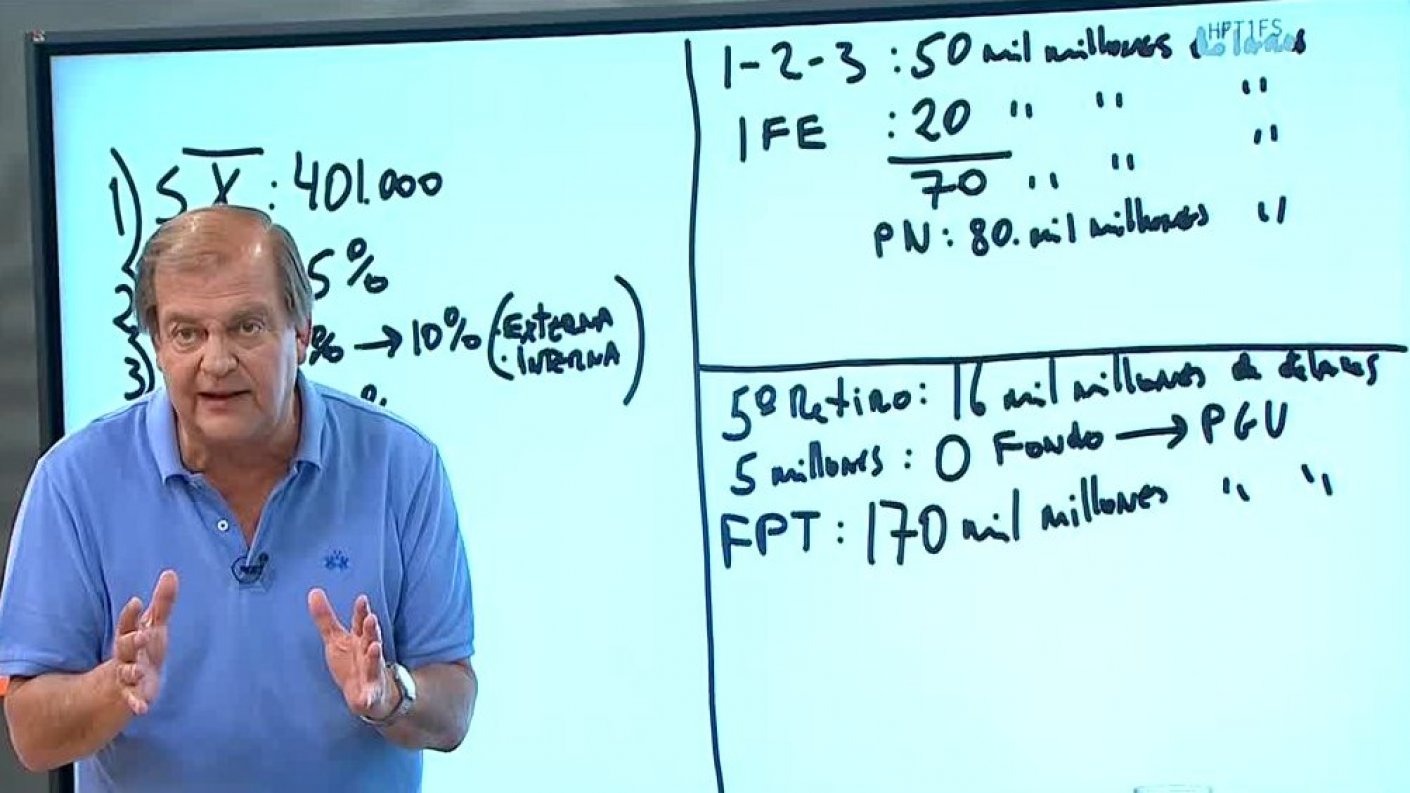 1) S X : 401.000
2 5%
3) % → 10% (· EXTERNA
· INTERNA)
%
1-2-3 : 50 mil millones dólares
IFE : 20 " " "
70 " " "
PN : 80. mil millones "
5º Retiro : 16 mil millones de dólares
5 millones : 0 Fondo → PGU
FPT : 170 mil millones " "